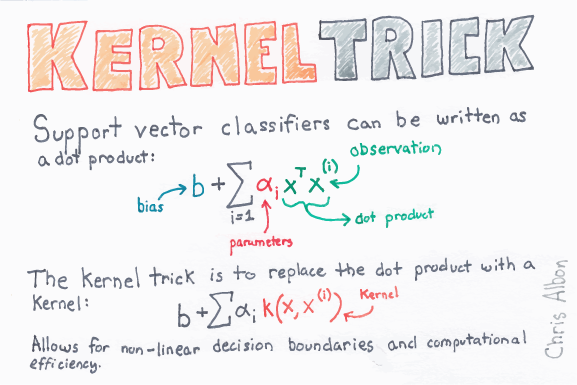 KERNEL TRICK
Support vector classifiers can be written as
a dot product:
observation
b + ∑ αᵢ xᵀ x⁽ⁱ⁾
i=1
bias
dot product
parameters
The Kernel trick is to replace the dot product with a
Kernel:
Kernel
b + ∑ αᵢ K(x, x⁽ⁱ⁾)
Allows for non-linear decision boundaries and computational
efficiency.
Chris Albon